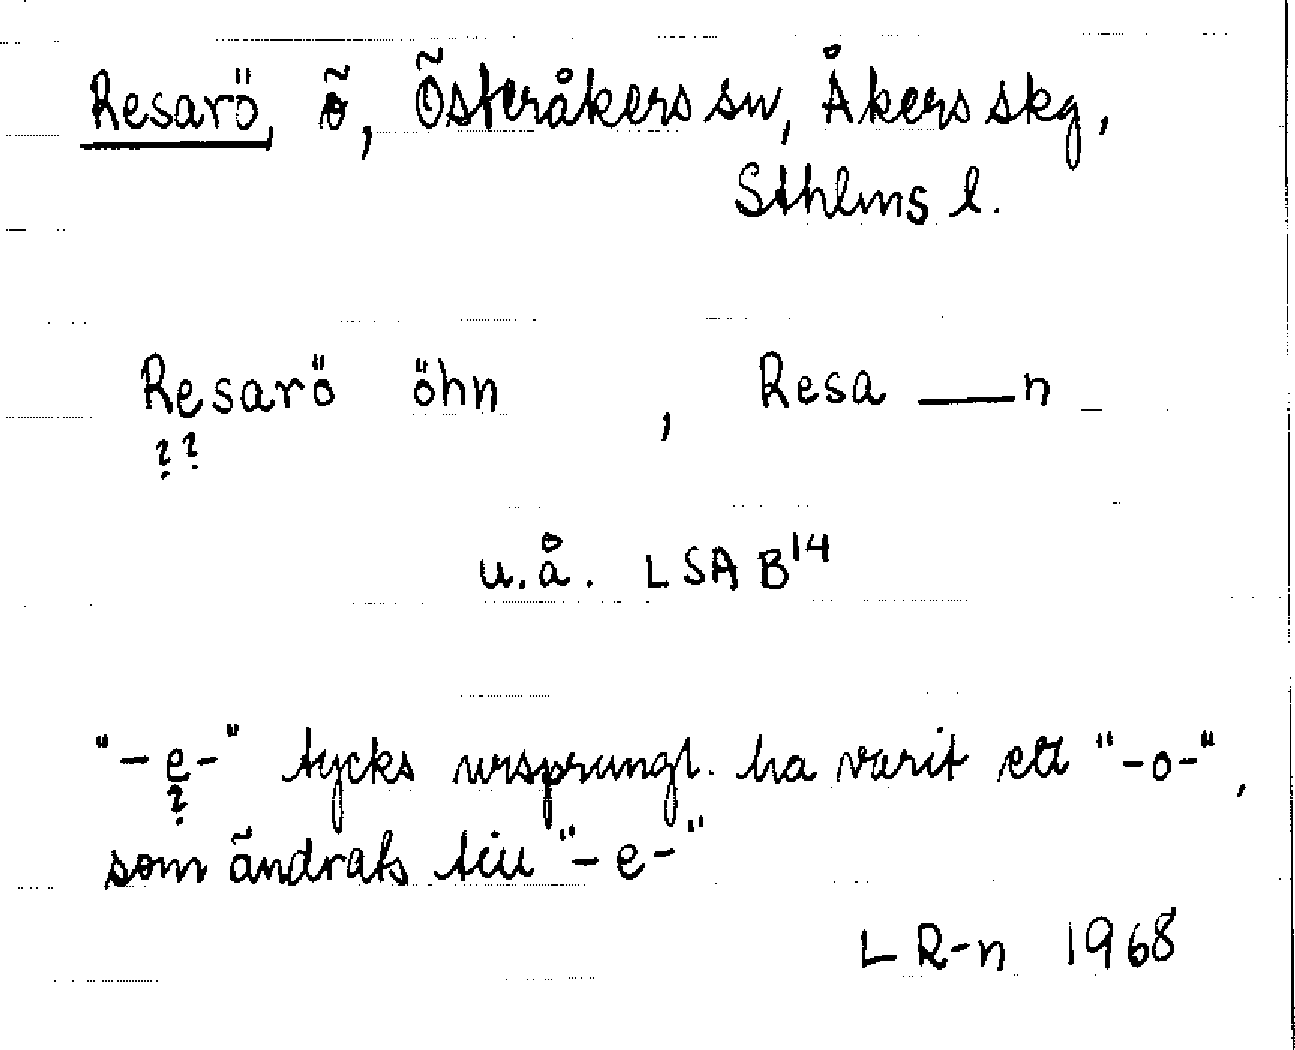 Resarö, ö, Österåkers sn, Åkers skg,
Sthlms l.
Resarö öhn , Resa — n
? ?
u.å. LSA B¹⁴
"-e-" tycks ursprungl. ha varit ett "-o-",
?
som ändrats till "-e-"
L R-n 1968